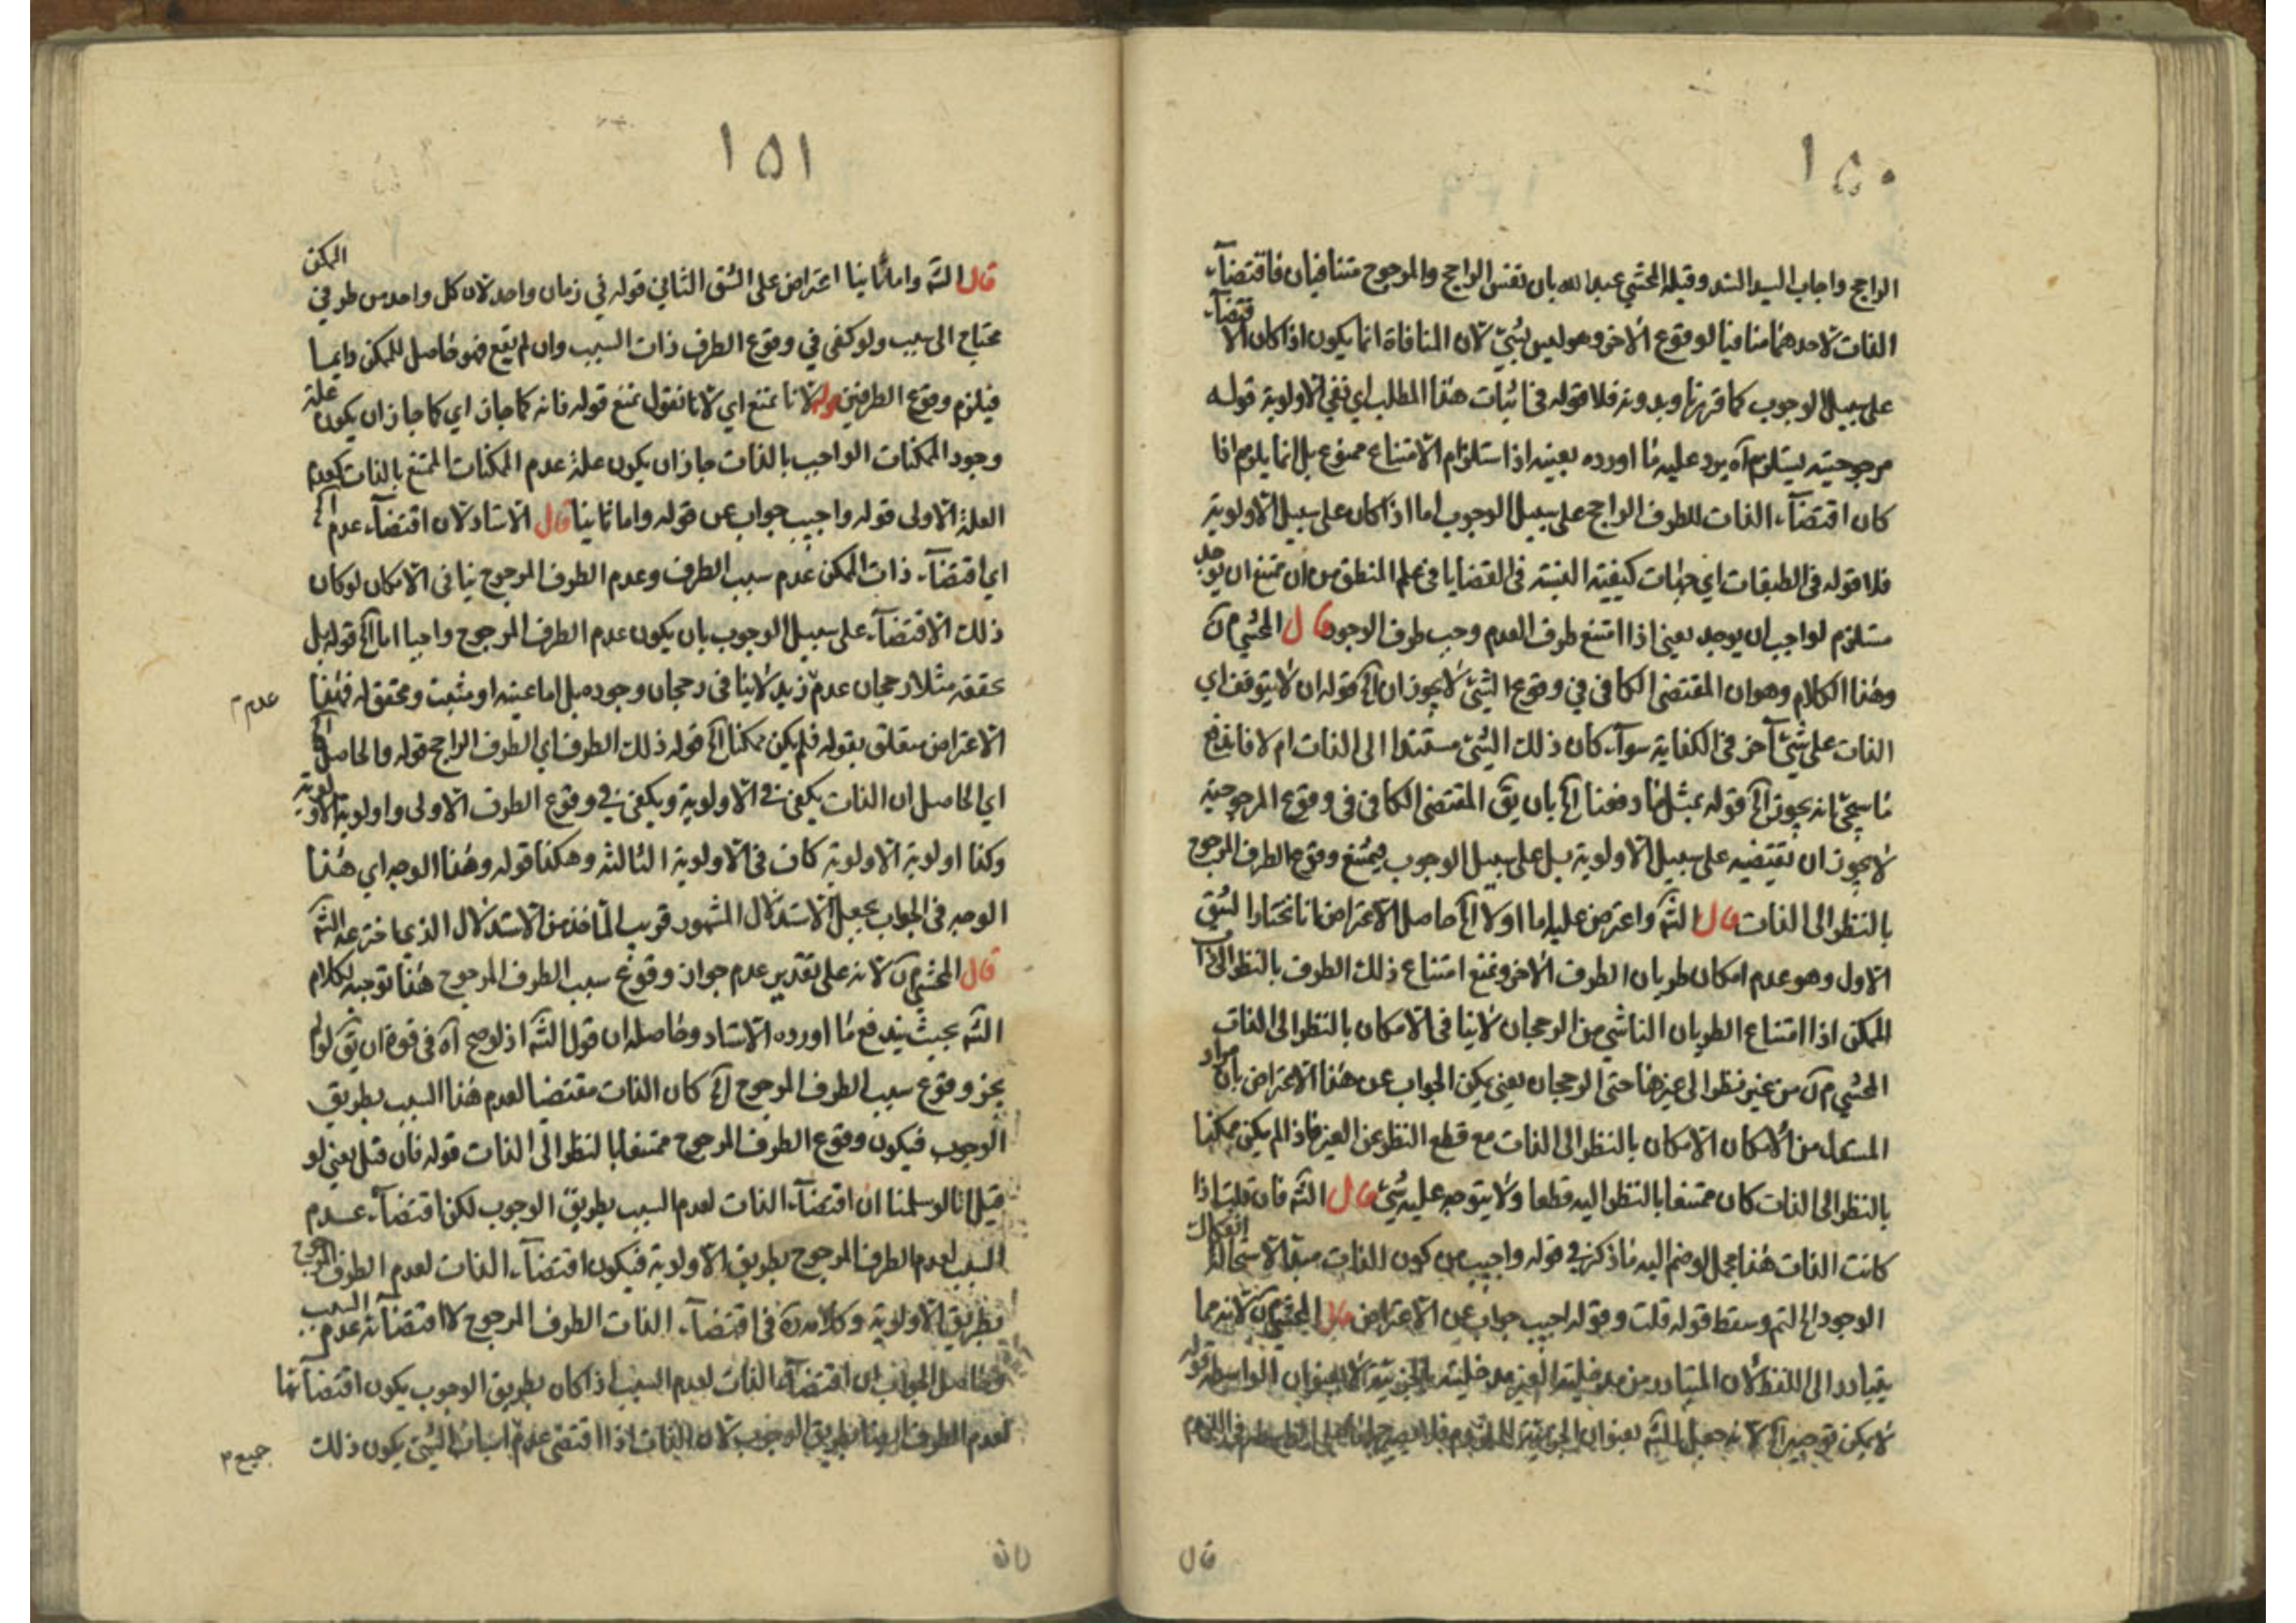 ١٥٠
الراجح واجاب السيد السند وقيله المحشي عبد الله بان نفس الراجح والمرجوح متنافيان فاقتضآء
الذات لاحدهما منافيا لوقوع الاخر وهو ليس بشئ لان المنافاة انما يكون اذا كان الاقتضآء
على سبيل الوجوب كما قررنا وبدونه فلا قوله في اثبات هذا المطلب اي نفي الاولوية قوله
مرجوحيته يستلزم آه يرد عليه ما اورده بعينه اذا استلزام الامتناع ممنوع بل انما يلزم اذا
كان اقتضآء الذات للطرف الراجح على سبيل الوجوب اما اذا كان على سبيل الاولوية
فلا قوله في الطبقات اي جهات كيفية النسبة في القضايا في علم المنطق من ان ممتنع ان يوجد
مستلزم لواجب ان يوجد يعني اذا امتنع طرف العدم وجب طرف الوجود قال المحشي م ن
وهذا الكلام وهو ان المقتضي الكافي في وقوع الشئ لا يجوز ان الخ قوله ان لا يتوقف اي
الذات على شئ آخر في الكفاية سوآء كان ذلك الشئ مستندا الى الذات ام لا فاندفع
ما سيجئ انه يجوز الخ قوله بمثل ما دفعنا الخ بان يق المقتضي الكافي في وقوع المرجوحية
لا يجوز ان تقتضيه على سبيل الاولوية بل على سبيل الوجوب فيمتنع وقوع الطرف المرجوح
بالنظر الى الذات قال الشه واعترض عليه اما اولا الخ حاصل الاعتراض انا نختار الشق
الاول وهو عدم امكان طريان الطرف الاخر ونمنع امتناع ذلك الطرف بالنظر الى ذات
الممكن اذا امتناع الطريان الناشي من الرجحان لا ينافي الامكان بالنظر الى الذات
المحشي م ن من غير نظر الى غيرها حتى الرجحان يعني يمكن الجواب عن هذا الاعتراض بان مراد
المستدل من الامكان الامكان بالنظر الى الذات مع قطع النظر عن الغير فاذا لم يكن ممكنا
بالنظر الى الذات كان ممتنعا بالنظر اليه قطعا ولا يتوجه عليه شئ قال الشه فان قلت اذا
كانت الذات هذا مجمل لو ضم اليه ما ذكر في قوله واجيب من كون الذات مبدأ لاستحالة انفكاك
الوجود الخ لتم وسقط قوله قلت وقوله اجيب جواب عن الاعتراض قال المحشي م ن لانه مما
يتبادر الى اللفظ لان المتبادر من مدخلية الغير مدخليته بالجزئية لا بعنوان الواسطة قوله
لا يمكن توجيهه الخ لانه جعل الشه بعنوان الجزئية
قال
١٥١
قال الشه واما ثانيا اعتراض على الشق الثاني قوله في زمان واحد لان كل واحد من طرفي الممكن
محتاج الى سبب ولو كفى في وقوع الطرف ذات السبب وان لم يقع فهو حاصل للممكن دايما
فيلزم وقوع الطرفين قوله لانا نمنع اي لانا نقول نمنع قوله فانه كما جاز اي كما جاز ان يكون علة
وجود الممكنات الواجب بالذات جاز ان يكون علة عدم الممكنات الممتنع بالذات كعدم
العلة الاولى قوله واجيب جواب عن قوله واما ثانيا قال الاستاد لان اقتضآء عدم الخ
اي اقتضآء ذات الممكن عدم سبب الطرف وعدم الطرف المرجوح ينافي الامكان لو كان
ذلك الاقتضآء على سبيل الوجوب بان يكون عدم الطرف المرجوح واجبا اما الخ قوله بل
يحققه مثلا رجحان عدم زيد لا ينافي رجحان وجوده بل اما عينه او مثبت ومحقق له فهذا
عدم م
الاعتراض متعلق بقوله فلم يكن ممكنا الخ قوله ذلك الطرف اي الطرف الراجح قوله والحاصل الخ
اي الحاصل ان الذات يكفي في الاولوية ويكفي في وقوع الطرف الاولى واولوية الاولوية
وكذا اولوية الاولوية كاف في الاولوية الثالثة وهكذا قوله وهذا الوجه اي هذا
الوجه في الجواب يجعل الاستدلال المشهور قريب المأخذ من الاستدلال الذي اخترعه الشه
قال المحشي م ن لانه على تقدير عدم جواز وقوع سبب الطرف المرجوح هذا توجيه لكلام
الشه بحيث يندفع ما اورده الاستاد وحاصله ان قول الشه اذ لو صح آه في قوة ان يق لو لم
يجز وقوع سبب الطرف المرجوح الخ كان الذات مقتضيا لعدم هذا السبب بطريق
الوجوب فيكون وقوع الطرف المرجوح ممتنعا بالنظر الى الذات قوله فان قيل يعني لو
قيل انا لو سلمنا ان اقتضآء الذات لعدم السبب بطريق الوجوب لكن اقتضآء عدم
السبب لعدم الطرف المرجوح بطريق الاولوية فيكون اقتضآء الذات لعدم الطرف المرجوح
بطريق الاولوية وكلامه في اقتضآء الذات الطرف المرجوح لا اقتضائه عدم السبب
وحاصل الجواب ان اقتضآء الذات لعدم السبب اذا كان بطريق الوجوب يكون اقتضآئها
لعدم الطرف ايضا بطريق الوجوب لان الذات اذا اقتضى عدم اسباب الشئ يكون ذلك
جميع م